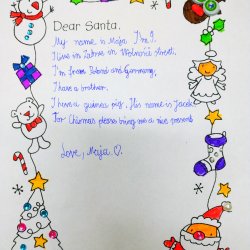 Dear Santa,
My name is Maja I'm 7.
I live in Zabrze in Wolności street.
I'm from Poland and
I have a brother.
I have a guinea pig. His name is Jacek
For Chirmas please bring me a nice presents
Love, Maja